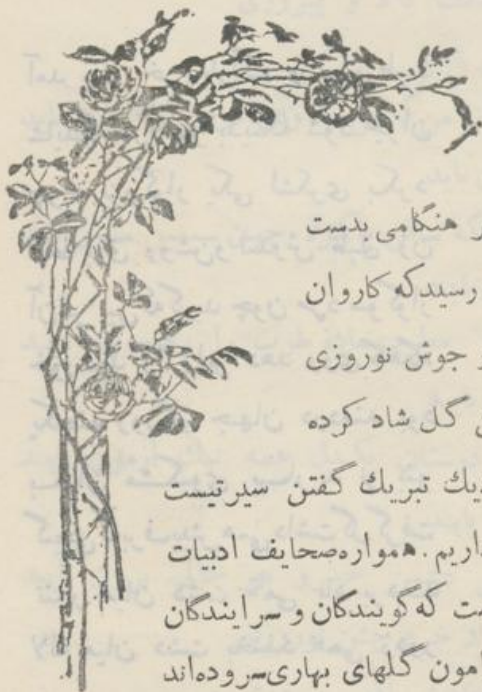 هنگامی بدست
رسیدکه کاروان
جوش نوروزی
گل شاد کرده
تبریك گفتن سیرتیست
داریم . همواره صحایف ادبیات
که گویندگان و سرایندگان
گلهای بهاری سروده‌اند